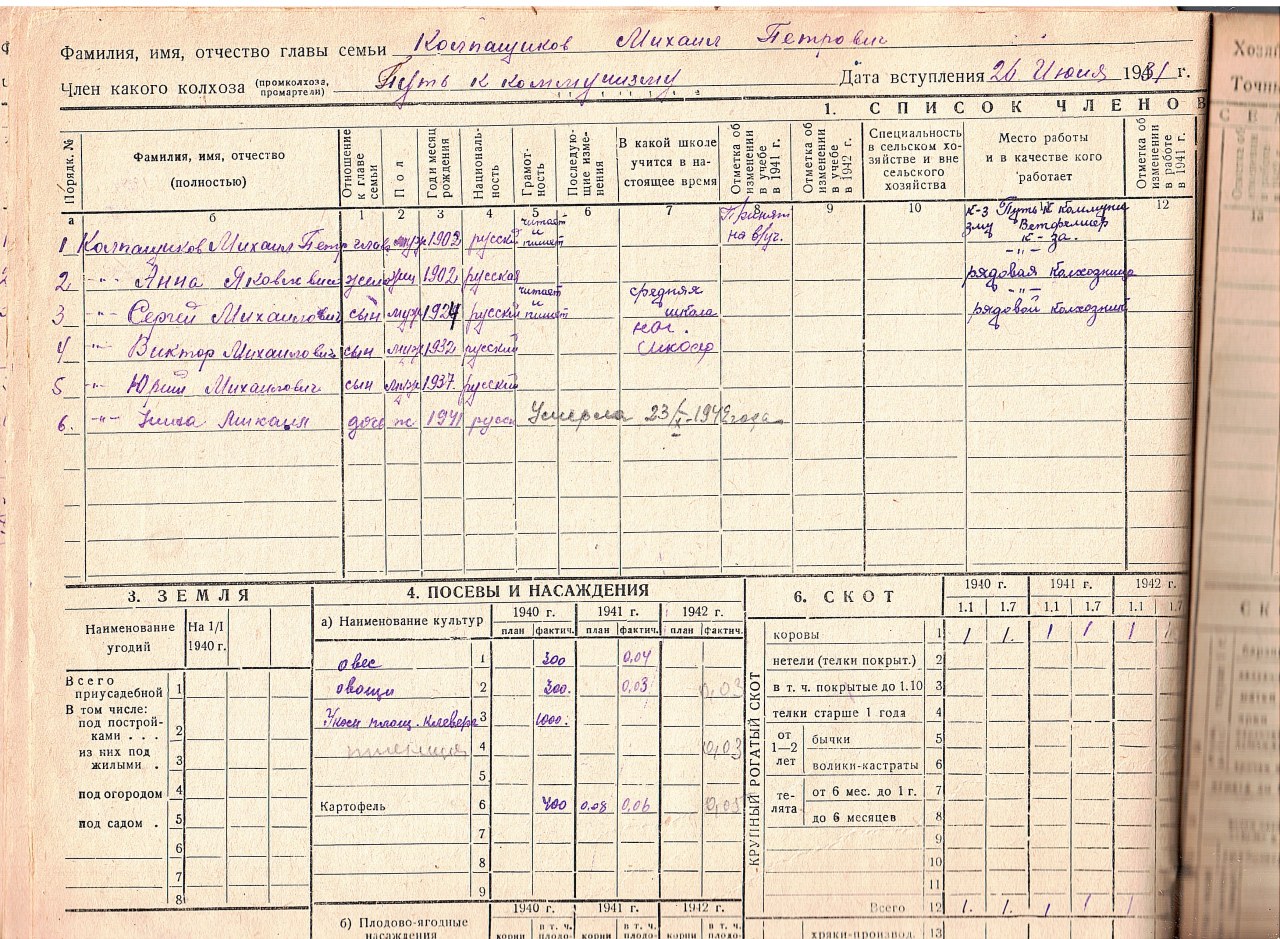 Фамилия, имя, отчество главы семьи Колпащиков Михаил Петрович
Член какого колхоза (промколхоза, промартели) Путь к коммунизму Дата вступления 26 Июля 1931 г.
1. СПИСОК ЧЛЕНОВ
Порядк. № Фамилия, имя, отчество (полностью) Отношение к главе семьи Пол Год и месяц рождения Националь-ность Грамот-ность Последую-щие изме-нения В какой школе учится в на-стоящее время Отметка об изменении в учебе в 1941 г. Отметка об изменении в учебе в 1942 г. Специальность в сельском хо-зяйстве и вне сельского хозяйства Место работы и в качестве кого работает Отметка об изменении в работе в 1941 г.
а б 1 2 3 4 5 6 7 8 9 10 12
1 Колпащиков Михаил Петр глава муж 1902 русский читает и пишет к-з Путь к Коммуни зму Ветфельшер к-за.
2 -"- Анна Яковлевна жена жен 1902 русская рядовая колхозница
3 -"- Сергей Михаилович сын муж 1924 русский читает и пишет средняя школа рядовой колхозник
4 -"- Виктор Михаилович сын муж 1932 русский нач. школа
5 -"- Юрий Михаилович сын муж 1937. русский
6. -"- Нина Михаил доч ж 1941 русск Умерла 23/X-1942 года
3. ЗЕМЛЯ
Наименование угодий На 1/I 1940 г.
Всего приусадебной 1
В том числе:
под построй-ками . . . 2
из них под жилыми . 3
под огородом 4
под садом . 5
6
7
8
4. ПОСЕВЫ И НАСАЖДЕНИЯ
а) Наименование культур 1940 г. 1941 г. 1942 г.
план фактич. план фактич. план фактич.
овес 1 300 0,04
овощи 2 300. 0,03 0,03
Укосн площ. Клевера 3 1000.
пшеница 4 0,03
5
Картофель 6 400 0,08 0,06 0,05
7
8
9
б) Плодово-ягодные насаждения 1940 г. 1941 г. 1942 г.
корни в т. ч. плодо- корни в т. ч. плодо- корни в т. ч. плодо-
6. СКОТ 1940 г. 1941 г. 1942 г.
1.1 1.7 1.1 1.7 1.1 1.7
КРУПНЫЙ РОГАТЫЙ СКОТ
коровы 1 1 1. 1 1 1 1
нетели (телки покрыт.) 2
в т. ч. покрытые до 1.10 3
телки старше 1 года 4
от 1—2 лет бычки 5
волики-кастраты 6
те-лята от 6 мес. до 1 г. 7
до 6 месяцев 8
9
10
11
Всего 12 1. 1. 1 1 1
хряки-производ. 13
Хозяй
Точны